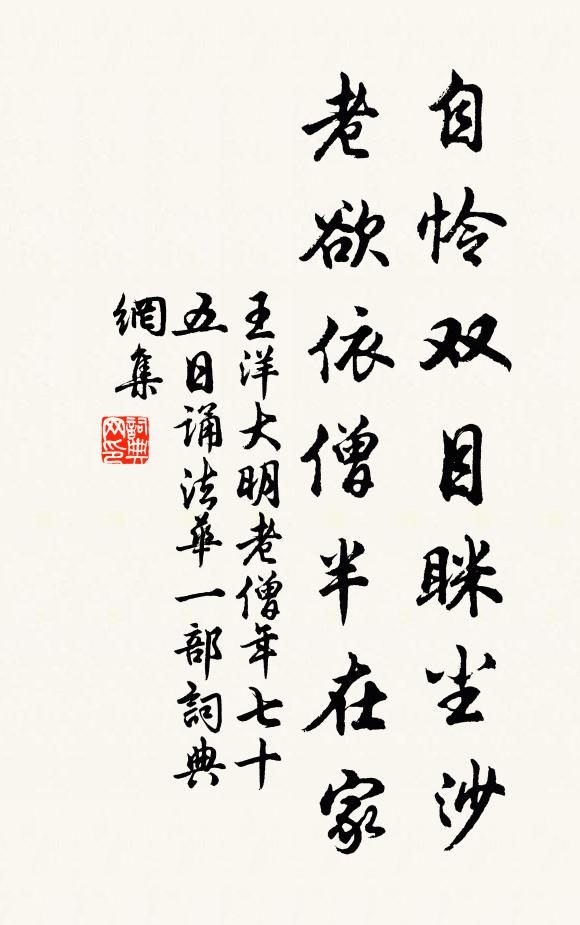 自怜双目眯尘沙
老欲依僧半在家
王洋大明老僧年七十
五日诵法华一部詞典
網集
詞典
网印